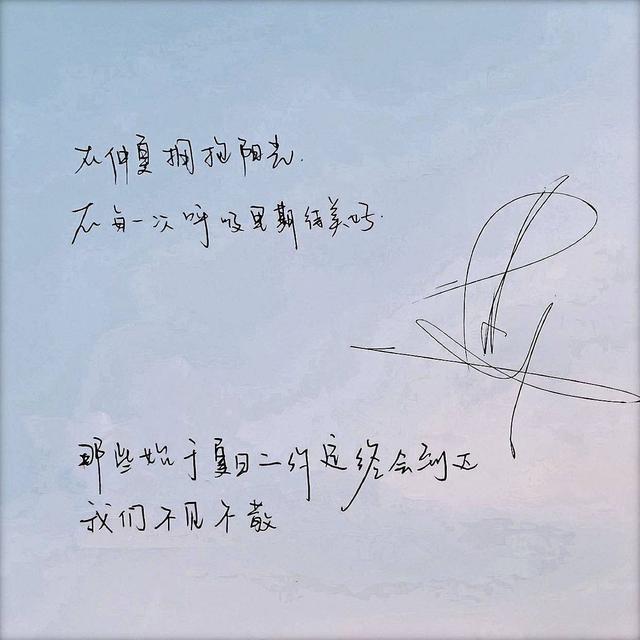 在仲夏拥抱阳光.
在每一次呼吸里期待美好.
那些始于夏日二约定终会到达
我们不见不散